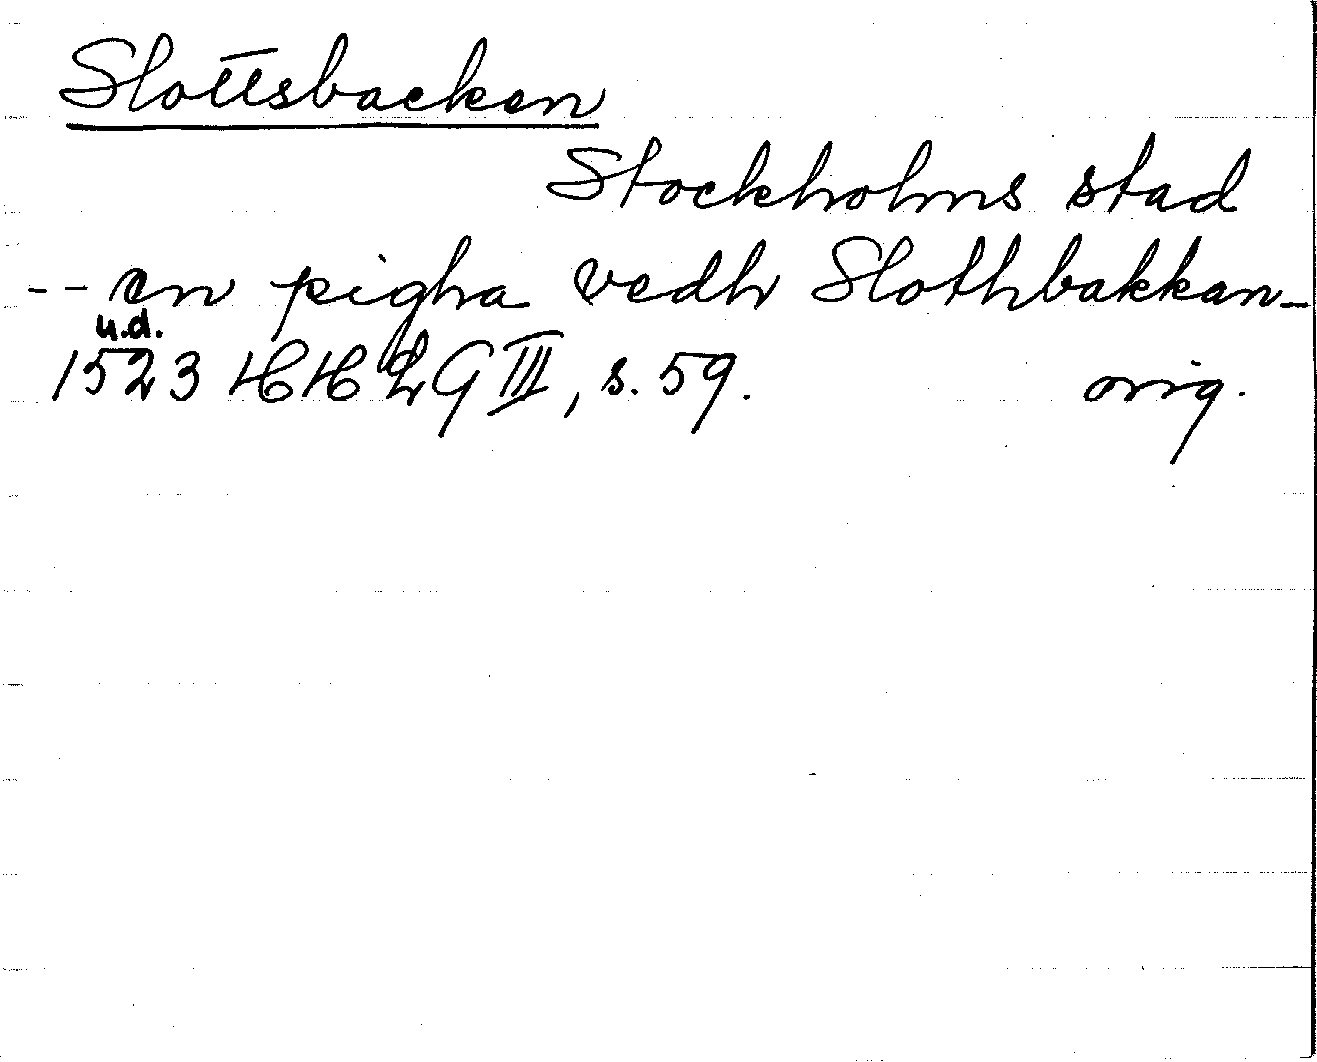 Slottsbacken
Stockholms stad
-- en pigha vedh Slothbakkan_
u.d.
1523 HH LG III, s. 59. orig.